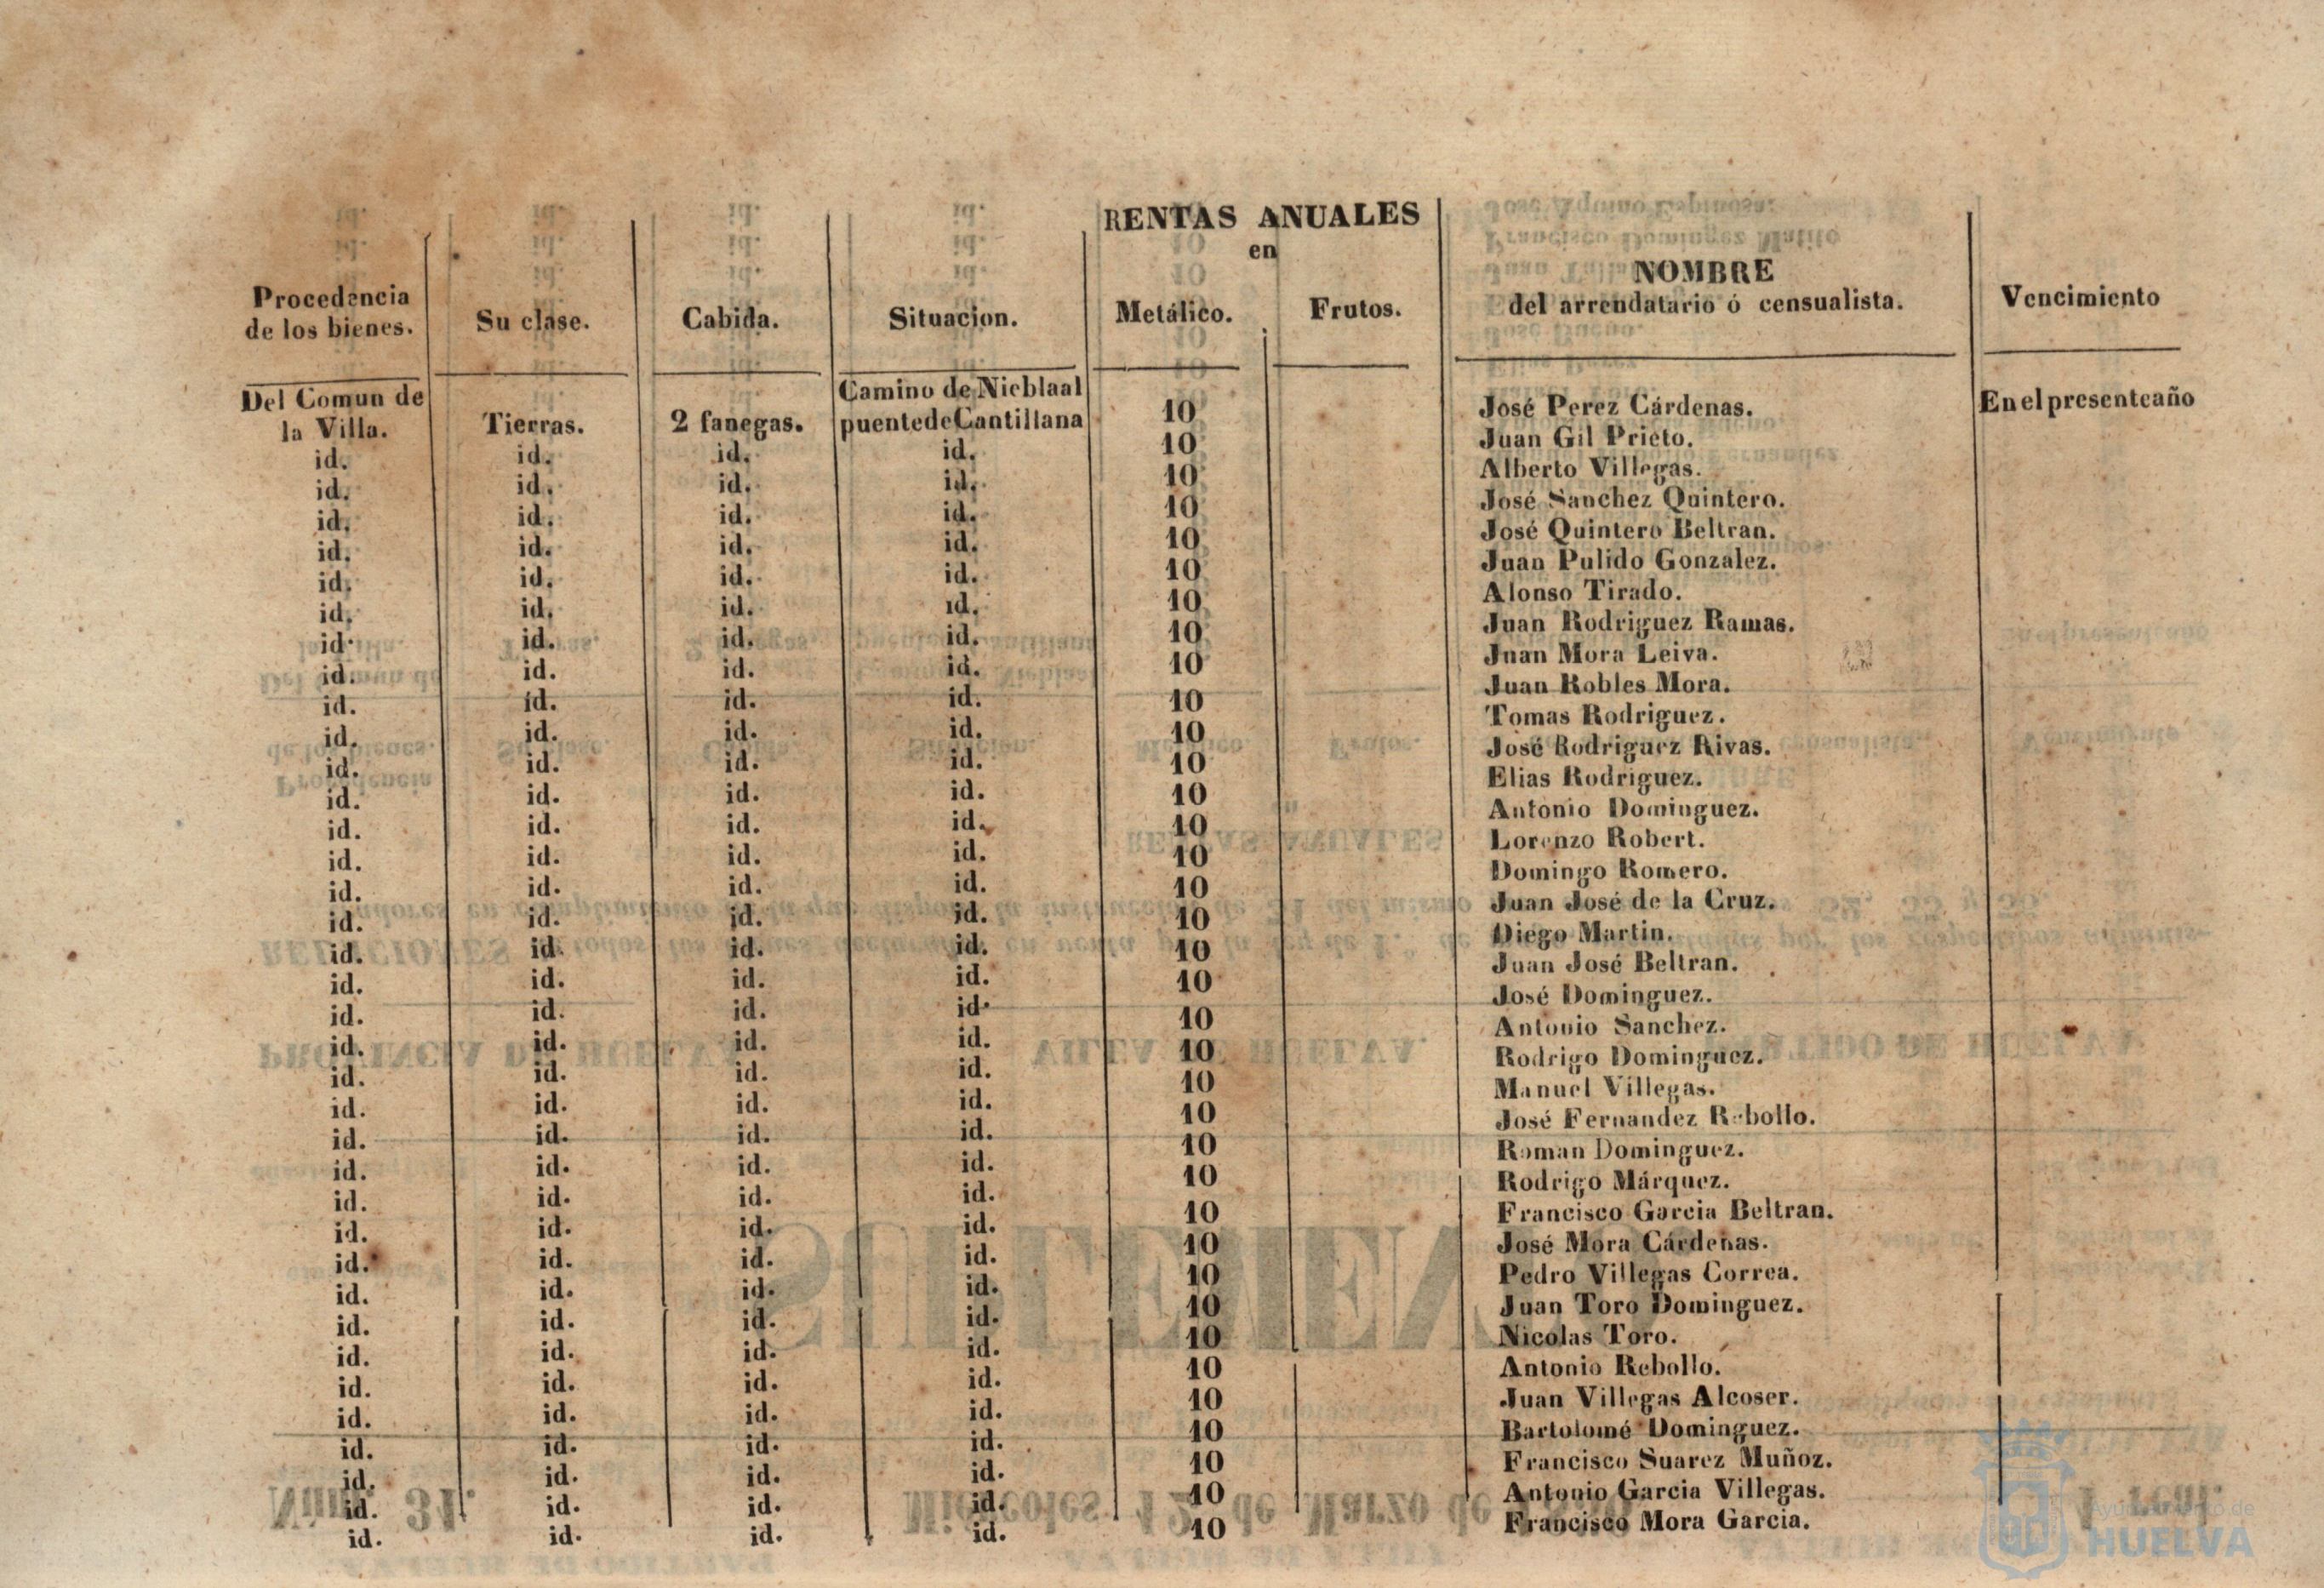 RENTAS ANUALES
en
Procedencia de los bienes. Su clase. Cabida. Situacion. Metálico. Frutos. NOMBRE del arrendatario ó censualista. Vencimiento
Del Comun de la Villa. Tierras. 2 fanegas. Camino de Niebla al puente de Cantillana 10 José Perez Cárdenas. En el presente año
id. id. id. id. 10 Juan Gil Prieto.
id. id. id. id. 10 Alberto Villegas.
id. id. id. id. 10 José Sanchez Quintero.
id. id. id. id. 10 José Quintero Beltran.
id. id. id. id. 10 Juan Pulido Gonzalez.
id. id. id. id. 10 Alonso Tirado.
id. id. id. id. 10 Juan Rodriguez Ramas.
id. id. id. id. 10 Juan Mora Leiva.
id. id. id. id. 10 Juan Robles Mora.
id. id. id. id. 10 Tomas Rodriguez.
id. id. id. id. 10 José Rodriguez Rivas.
id. id. id. id. 10 Elias Rodriguez.
id. id. id. id. 10 Antonio Dominguez.
id. id. id. id. 10 Lorenzo Robert.
id. id. id. id. 10 Domingo Romero.
id. id. id. id. 10 Juan José de la Cruz.
id. id. id. id. 10 Diego Martin.
id. id. id. id. 10 Juan José Beltran.
id. id. id. id. 10 José Dominguez.
id. id. id. id. 10 Antonio Sanchez.
id. id. id. id. 10 Rodrigo Dominguez.
id. id. id. id. 10 Manuel Villegas.
id. id. id. id. 10 José Fernandez Rebollo.
id. id. id. id. 10 Roman Dominguez.
id. id. id. id. 10 Rodrigo Márquez.
id. id. id. id. 10 Francisco Garcia Beltran.
id. id. id. id. 10 José Mora Cárdenas.
id. id. id. id. 10 Pedro Villegas Correa.
id. id. id. id. 10 Juan Toro Dominguez.
id. id. id. id. 10 Nicolas Toro.
id. id. id. id. 10 Antonio Rebollo.
id. id. id. id. 10 Juan Villegas Alcoser.
id. id. id. id. 10 Bartolomé Dominguez.
id. id. id. id. 10 Francisco Suarez Muñoz.
id. id. id. id. 10 Antonio Garcia Villegas.
id. id. id. id. 10 Francisco Mora Garcia.
Ayuntamiento de
HUELVA